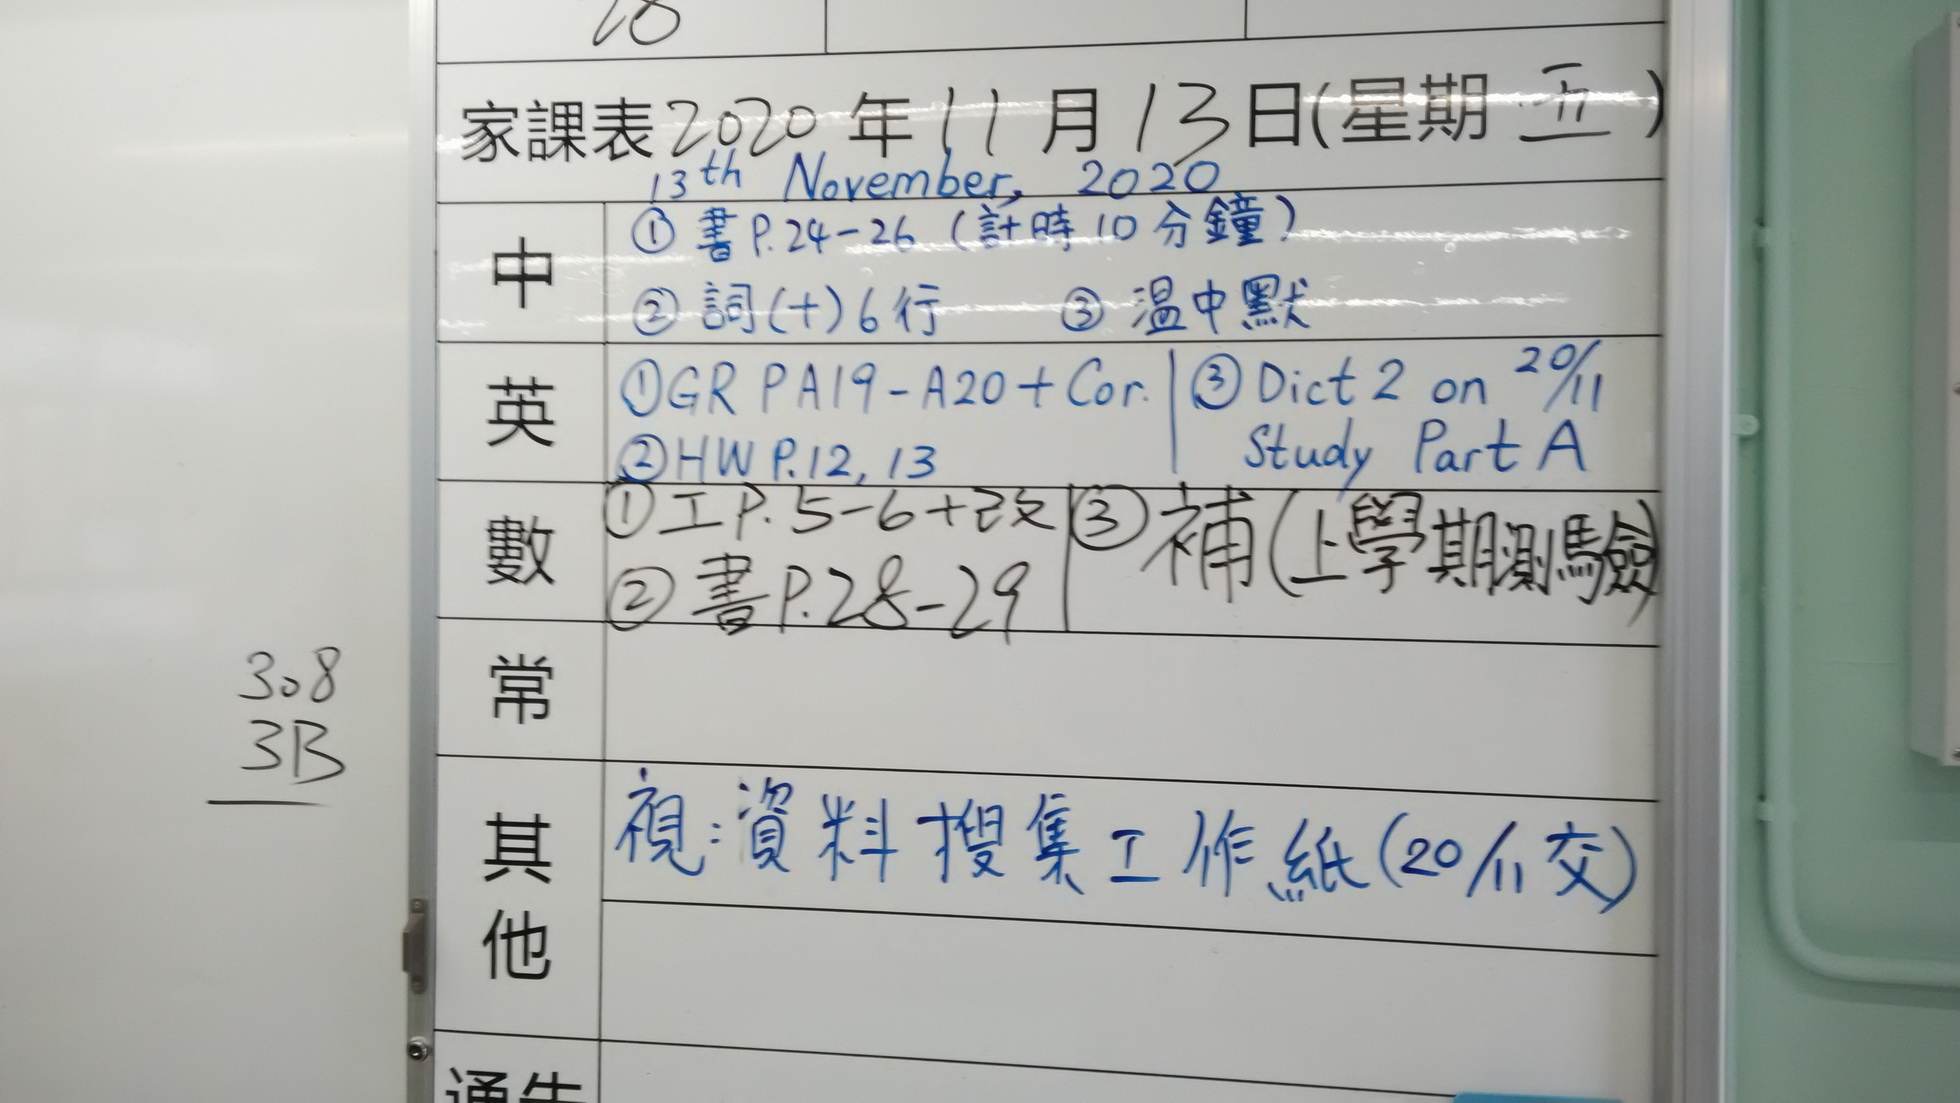 28
家課表2020年11月13日(星期五)
13th November, 2020
中
①書P.24-26(計時10分鐘)
②詞(十)6行 ③溫中默
英
①GR PA19-A20+Cor.
②HW P.12, 13
③Dict 2 on 20/11
Study Part A
數
①工P.5-6+改
②書P.28-29
③補(上學期測驗)
常
308
3B
其他
視:資料搜集工作紙(20/11交)
通告